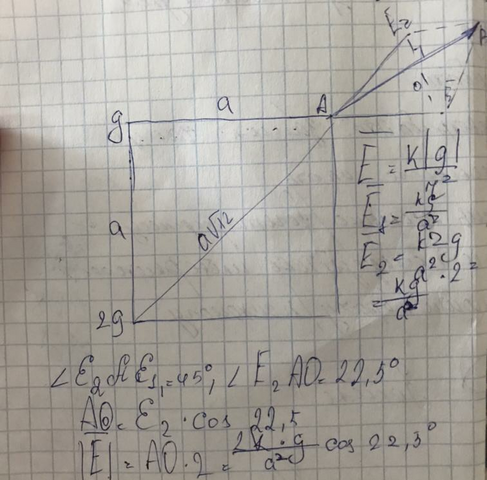 E₂
E₁
P
O
g a A
E = k|g| / r²
a
a√2
E₁ = kg / a²
E₂ = k2g / a²·2 =
= kg / a²
2g
∠E₂AE₁ = 45°, ∠E₂AO = 22,5°
AO = E₂ · cos 22,5
|E| = AO · 2 = 2k · g / a² cos 22,3°